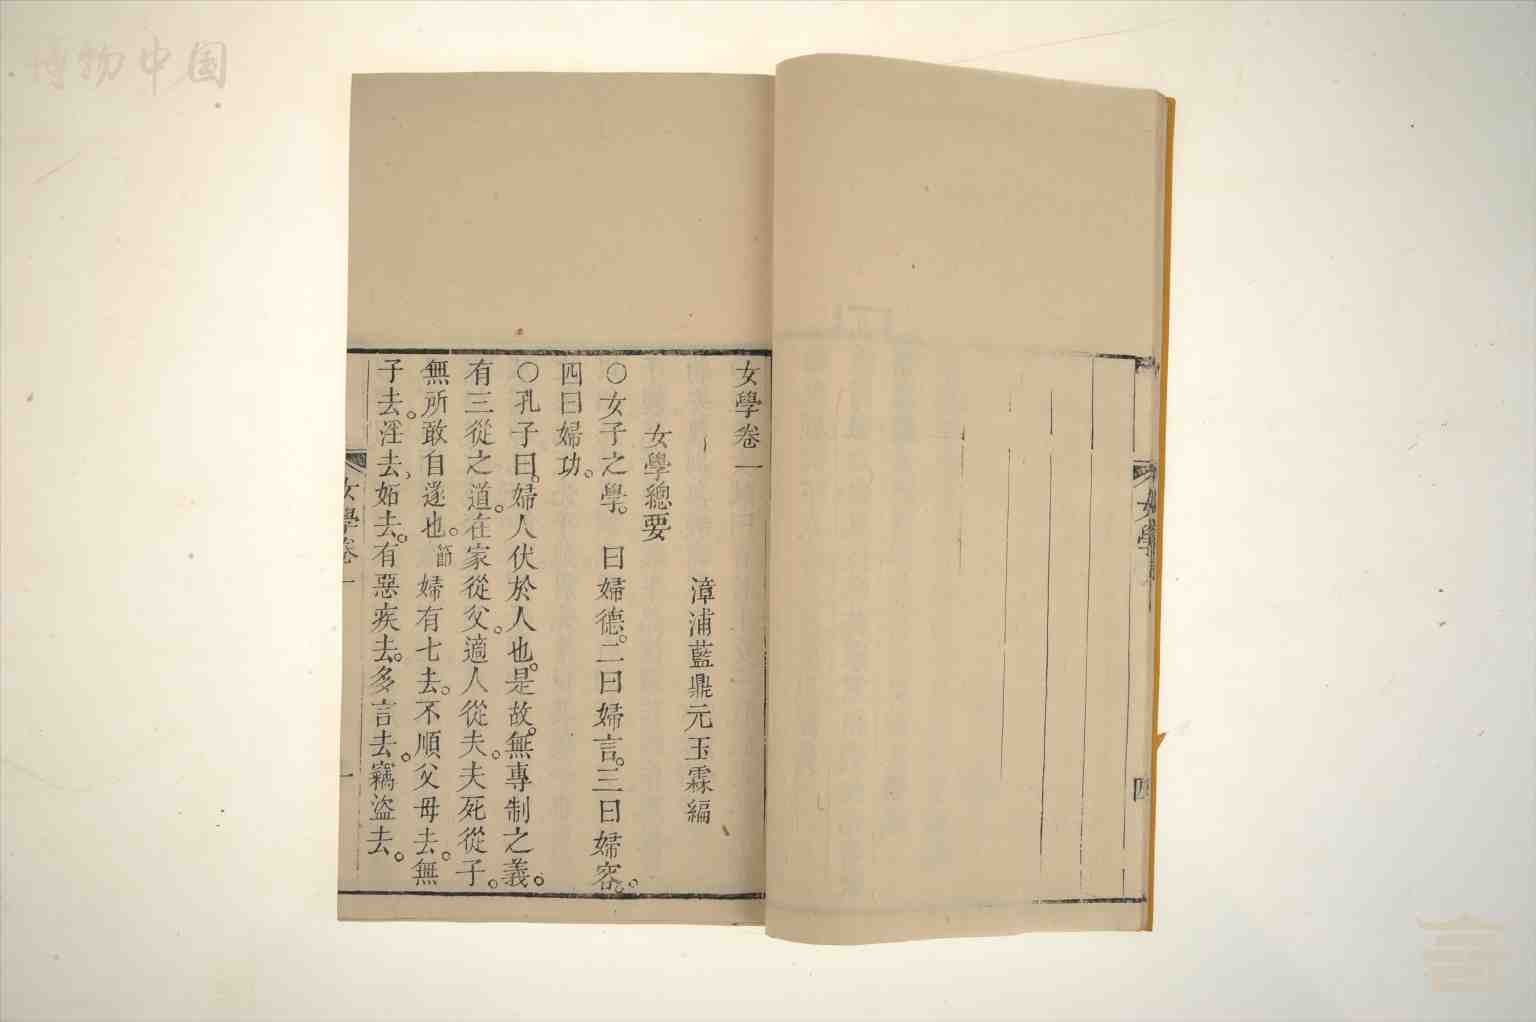 博物中国
女學
四
女學卷一
漳浦藍鼎元玉霖編
女學總要
○女子之學。曰婦德。二曰婦言。三曰婦容。
四曰婦功。
○孔子曰。婦人伏於人也。是故。無專制之義。
有三從之道。在家從父。適人從夫。夫死從子。
無所敢自遂也。節婦有七去。不順父母去。無
子去。淫去。妬去。有惡疾去。多言去。竊盜去。
女學卷一
一